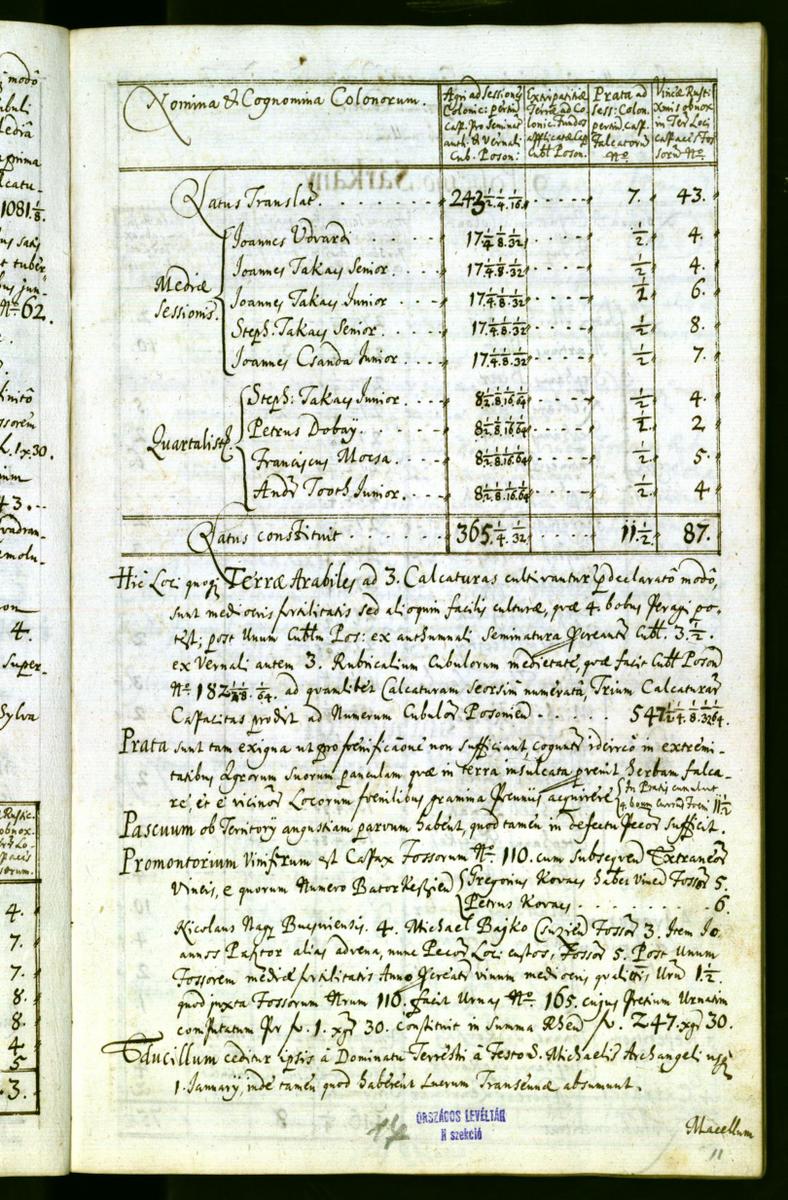 Nomina & Cognomina Colonorum. Agri ad Sessiones Colonic: pertin: Cap. Pro Seminat. auth. & Vernali Cub. Poson. Extirpatitiæ Terræ ad Colonic: fundos applicatæ Cap. Cubl Poson. Prata ad Sess: Colon. pertin. Cap. Falcatorũ No Vineæ Rusti obnox in Ter: Loci Capaces Fossorũ No.
Latus Translat. 243 1/2. 1/4. 1/16. 7. 43.
Mediæ Sessionis.
Joannes Udvardi 17 1/4. 1/8. 1/32 1/2 4.
Joannes Takacs Senior. 17 1/4. 1/8. 1/32 1/2 4.
Joannes Takacs Junior 17 1/4. 1/8. 1/32 1/2 6.
Steph. Takacs Senior 17 1/4. 1/8. 1/32 1/2 8.
Joannes Csanda Junior 17 1/4. 1/8. 1/32 1/2 7.
Quartalistæ
Steph: Takacs Junior. 8 1/2. 1/8. 1/16. 1/64 1/2 4.
Petrus Dobay. 8 1/2. 1/8. 1/16. 1/64 1/2 2
Franciscus Mocsa. 8 1/2. 1/8. 1/16. 1/64 1/2 5.
Andr Tooth Junior. 8 1/2. 1/8. 1/16. 1/64 1/2 4
Latus constituit 365. 1/4. 1/32 11 1/2. 87.
Hic Loci quoq Terræ Arabiles ad 3. Calcaturas cultivantur prdeclaratô modô,
sunt mediocris fertilitatis sed alioquin facilis culturæ, quæ 4. bobus Peragi po-
test; post Unum Cubtm Pos: ex authumnali Seminatura Procreantr Cubl. 3. 1/2.
ex Vernali autem 3. Rubricalium Cubulorum medietate, quæ facit Cubl Poson
No 182 1/4. 1/8. 1/64. ad quamlibet Calcaturam Seorsim numeratã, Trium Calcaturar
Capacitas prodit ad Numerum Cubulor Posonien 547 1/2. 1/4. 1/8. 1/32. 1/64.
Prata sunt tam exigua ut pro fœnificaõne non sufficiant, cogunt idcircò in extremi-
tatibus Agrorum suorum paucu­lam quæ in terra insulcata provenit herbam falca-
re, et è vicinor Locorum fœnilibus gramina Pecuniis acquirere In Pratis cumulent
4. boum currus Fœni 11 1/2
Pascuum ob Territory angustiam parvum habent, quod tamen in defectu Pecor sufficit.
Promontorium Viniferum est Capax Fossorum No. 110. cum subseqven Extraneor
Vineis, è quorum Numero BatorKeszien Gregorius Kovacs habet Vineã Fossor 5.
Petrus Kovacs 6.
Nicolaus Nagy 4. Michael Bajko Fossor 3. Item Jo
annes Pasztor alias advena, nunc Pecor Loci custos, Fossor 5. Post Unum
Fossorem mediæ fertilitatis Anno Procreatr vinum mediocris qualitis Urnæ 1 1/2.
quod juxta Fossorum Nrum 110. facit Urnas No. 165. cujus Pretium Urnatim
computatum Pr fr. 1. xgr 30. constituit in Summa Rhen fr. 247. xgr 30.
Educillum ceditur ipsis â Dominatu Terrestri â Festo S. Michaelis Archangeli usq
1. January, inde tamen quod haberent Lucrum Transennæ absumunt.
ORSZÁGOS LEVÉLTÁR
N szekció
Macellum
11